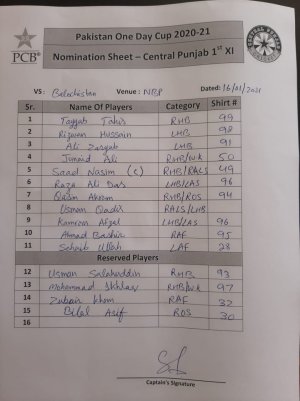 Pakistan One Day Cup 2020-21
PCB
Nomination Sheet – Central Punjab 1st XI
VS: Balochistan Venue : NBP Dated: 16/01/2021
Sr. Name Of Players Category Shirt #
1 Tayyab Tahir RHB 99
2 Rizwan Hussain LHB 98
3 Ali Zaryab LHB 91
4 Junaid Ali RHB/WK 50
5 Saad Nasim (c) RHB/RALS 49
6 Raza Ali Dar LHB/LAS 96
7 Qasim Akram RHB/ROS 94
8 Usman Qadir RALS/LHB
9 Kamran Afzal LHB/LAS 96
10 Ahmad Bashir RAF 95
11 Sohaib Ullah LAF 28
Reserved Players
12 Usman Salahuddin RHB 93
13 Mohammad Ikhlaq RHB/WK 97
14 Zubair Khan RAF 32
15 Bilal Asif ROS 30
16
Captain's Signature